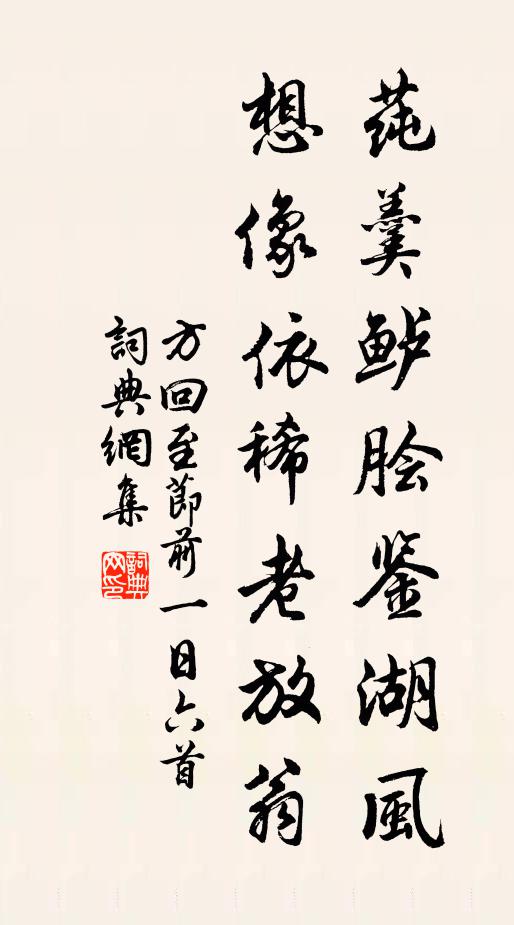 莼羹鲈脍鉴湖風
想像依稀老放翁
方回至節前一日六首
詞典網集
詞典
网印